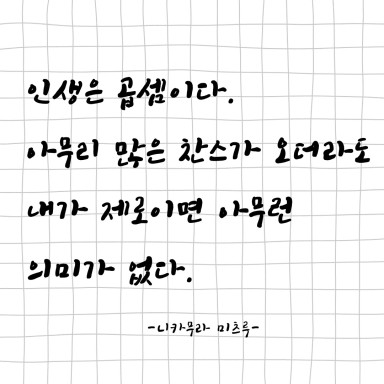 인생은 곱셈이다.
아무리 많은 찬스가 오더라도
내가 제로이면 아무런
의미가 없다.
-니카무라 미츠루-